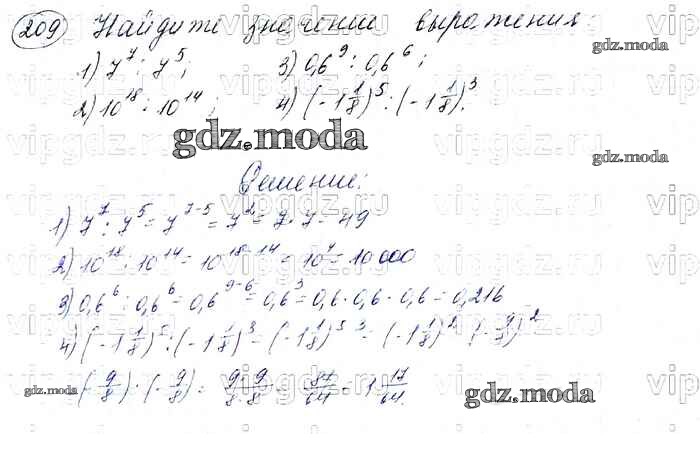 209 Найдите значение выражения
gdz.moda
1) 7^7 : 7^5; 3) 0,6^9 : 0,6^6;
2) 10^18 : 10^14; 4) (-1 1/8)^5 : (-1 1/8)^3.
gdz.moda
gdz.moda
Решение:
1) 7^7 : 7^5 = 7^7-5 = 7^2 = 7 · 7 = 49
2) 10^18 : 10^14 = 10^18-14 = 10^4 = 10000
3) 0,6^6 : 0,6^6 = 0,6^9-6 = 0,6^3 = 0,6 · 0,6 · 0,6 = 0,216
4) (-1 1/8)^5 : (-1 1/8)^3 = (-1 1/8)^5-3 = (-1 1/8)^2 (-9/8)^2
(-9/8) · (-9/8) = 9·9/8·8 = 81/64 = 1 17/64.
gdz.moda
gdz.moda
vipgdz.ru